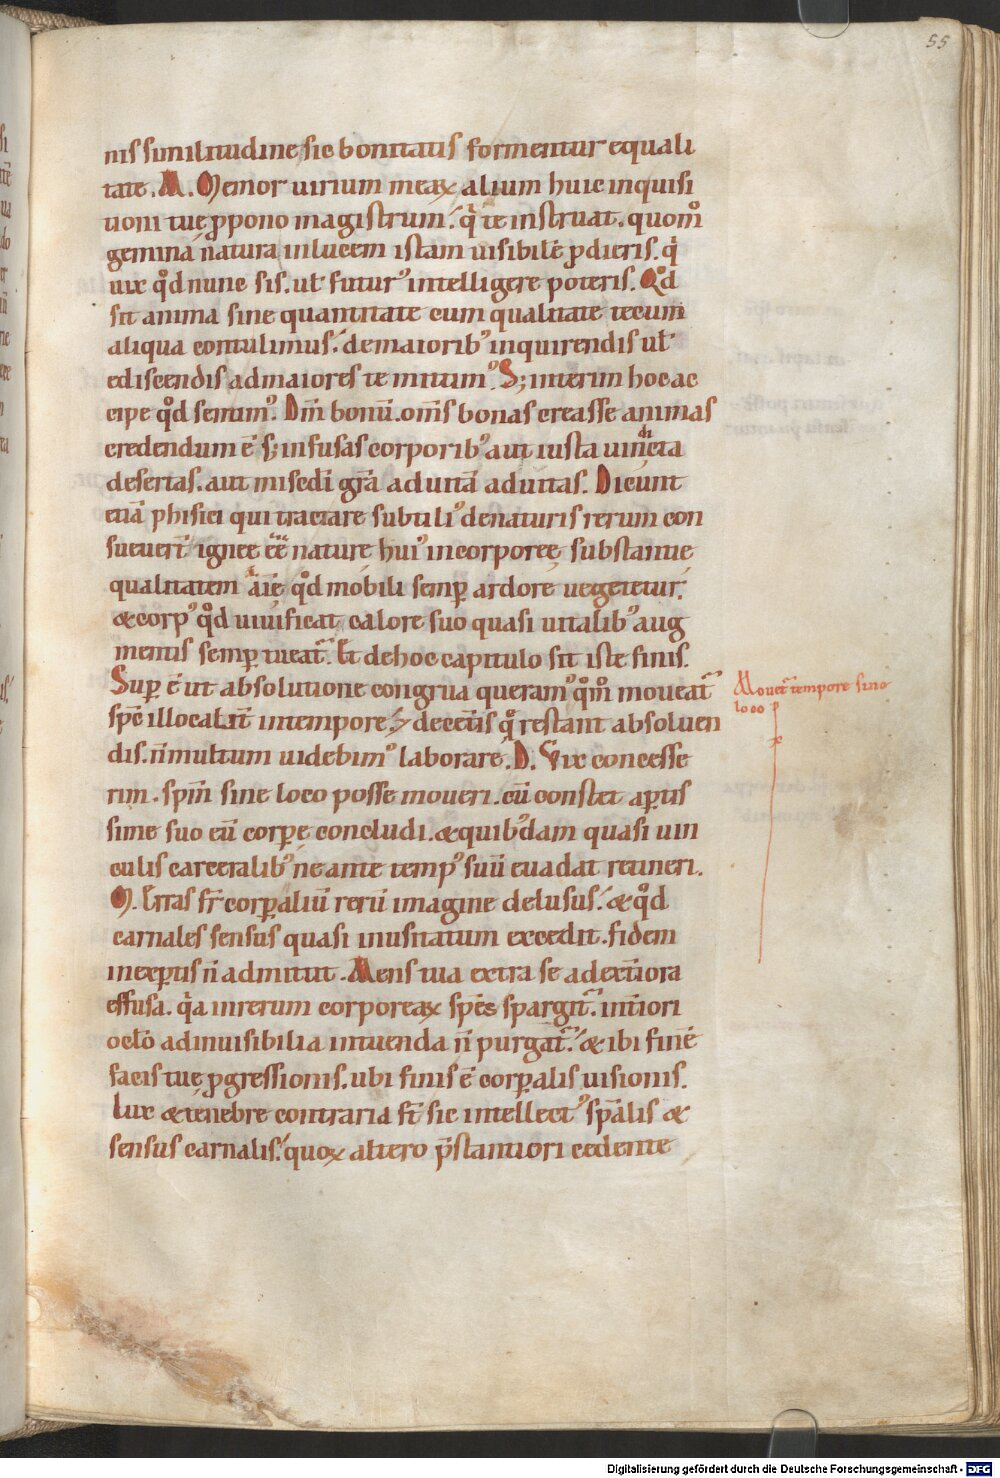 55
nis similitudine sic bonitatis formentur equali
tate. M. Memor virium meaꝝ alium huic inquisi
tioni tuę ꝓpono magistrum. q̇ te instruat. quom̊
gemina natura in lucem istam uisibilē ꝓdieris. q̇
uix qd̊ nunc sis. ut futurꝰ intelligere poteris. Qd̊
sit anima sine quantitate cum qualitate tecum
aliqua contulimus. de maioribꝰ inquirendis ut
ediscendis ad maiores te mittimꝰ. S; interim hoc ac
cipe qd̊ sentimꝰ. Dm̄ bonū. om̄s bonas creasse animas
credendum ē s; infusas corporibꝰ aut iusta uindicta
desertas. aut misedi gr̄a ad uitā aduitas. Dicunt
etiā phisici qui tractare subtiliꝰ de naturis rerum con
sueuer̄t ignee eē̄ nature huiꝰ incorporeę substantie
qualitatem aīe qd̊ mobili semꝑ ardore uegetetur.
& corpꝰ qd̊ uiuificat calore suo quasi uitalibꝰ aug
mentis semꝑ tueat̄. Et de hoc capitulo sit iste finis.
Suꝑ ē ut absolutione congrua queramꝰ qm̊ moueat̄
spc̄ illocalit̄ in tempore. & de cet̄is q̊ restant absoluen
dis. n̄ multum uidebimꝰ laborare. D. Vix concesse
rim. spm̄ sine loco posse moueri. cū constet aꝑtis
sime suo eū corꝑe concludi. & quibꝰdam quasi uin
culis carceralibꝰ ne ante tempꝰ suū euadat retineri.
M. Erras fr̄ corꝑaliū rerū imagine delusus. & qd̊
carnales sensus quasi inusitatum excedit. fidem
inexꝑtis n̄ admittit. Mens tua extra se ad ext̄iora
effusa. q̇a in rerum corporeaꝝ spēs spargit̄. int̄iori
oclo̊ ad inuisibilia intuenda n̄ purgat̄. & ibi finē
facis tuę ꝓgressionis. ubi finis ē corꝑalis uisionis.
Lux & tenebre contraria st̄ sic intellectꝰ spāalis &
sensus carnalis. quoꝝ altero p̄stantiori cedente
Mouet̄ tempore sine
loco
Digitalisierung gefördert durch die Deutsche Forschungsgemeinschaft - DFG